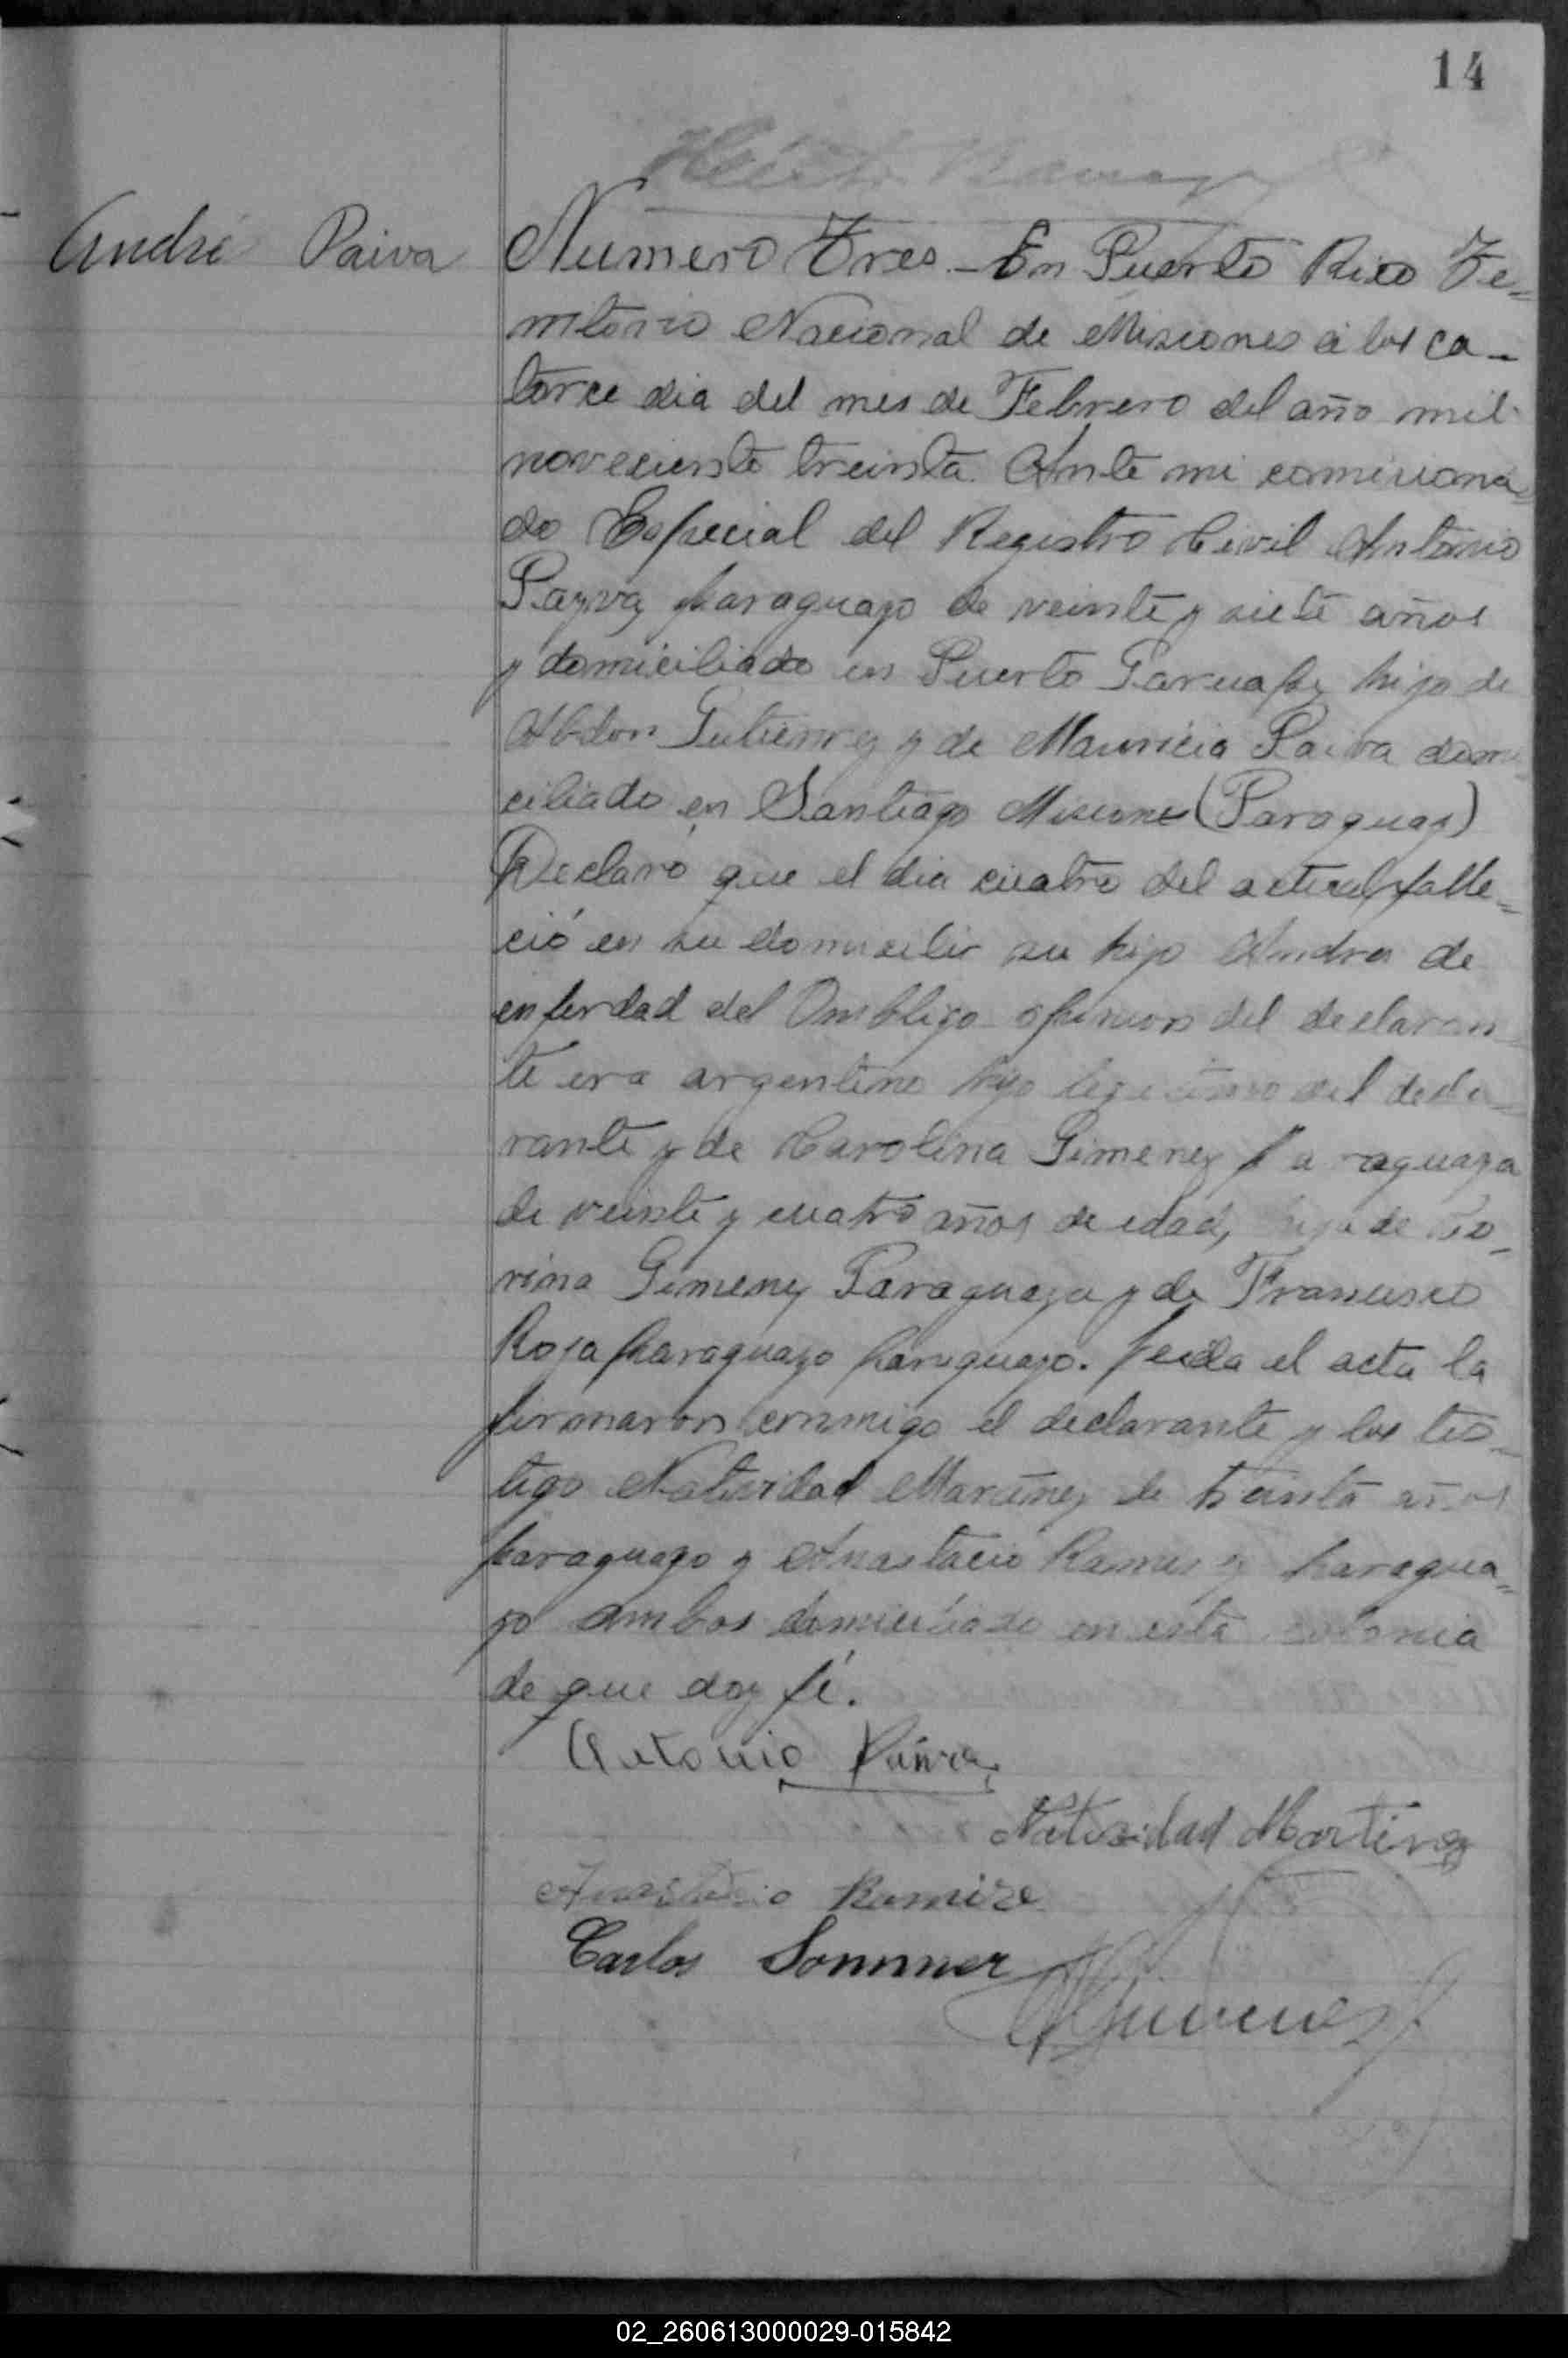 14
André Paiva
Numero Tres. - En Puerto Rico Te=
rritorio Nacional de Misiones á los ca-
torce dia del mes de Febrero del año mil
noveciento treinta. Ante mi comisiona=
do Especial del Registro Civil Antonio
Payva, paraguayo de veinte y siete años
y domiciliado en Puerto Garuape, hijo de
Abdon Gutierrez y de Mauricia Paiva domi
ciliado en Santiago Misiones (Paraguay)
Declaró que el dia cuatro del actual falle=
ció en su domicilio su hijo Andres de
enferdad del Ombligo opinion del declaran
te era argentino hijo legitimo del decla=
rante y de Carolina Gimenez paraguaya
de veinte y cuatro años de edad, hija de
rina Gimenez Paraguaya y de Francisco
Roja paraguayo paraguayo. Leida el acta la
firmaron conmigo el declarante y los tes-
tigo Natividad Martinez de treinta años
paraguayo y Anastacio Ramirez paragua=
yo ambos domiciliado en esta colonia
de que doy fé.
Antonio Paiva
Natividad Martinez
Anastacio Ramire
Carlos Sommer
02_260613000029-015842